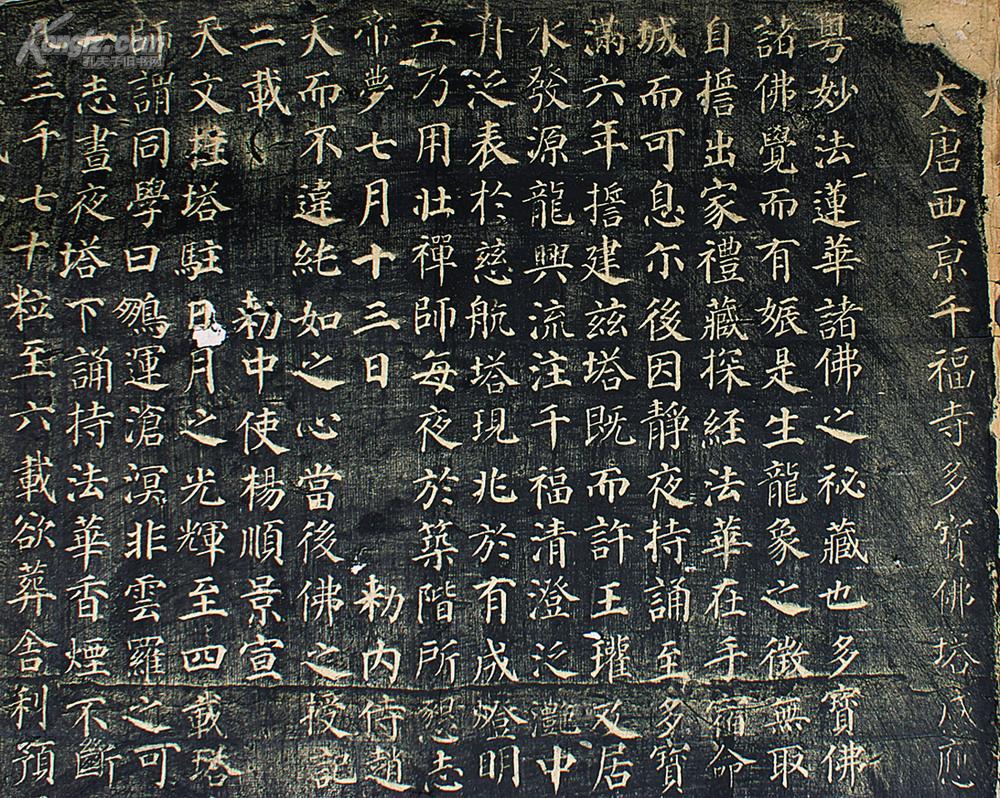 大唐西京千福寺多寳佛塔感應
粤妙法蓮華諸佛之祕藏也多寳佛
諸佛覺而有娠是生龍象之徵無取
自誓出家禮藏探經法華在手宿命
城而可息尒後因靜夜持誦至多寳
滿六年誓建兹塔既而許王瓘及居
水發源龍興流注千福清澄泛灩中
舟泛表於慈航塔現兆於有成燈明
工乃用壯禪師每夜於築階所懇志
帝夢七月十三日 勑內侍趙
天而不違純如之心當後佛之授記
二載 勑中使楊順景宣
天文挂塔駐日月之光輝至四載塔
謂同學曰鵬運滄溟非雲羅之可
志晝夜塔下誦持法華香煙不斷
三千七十粒至六載欲葬舍利預
Kongfz.com
孔夫子旧书网